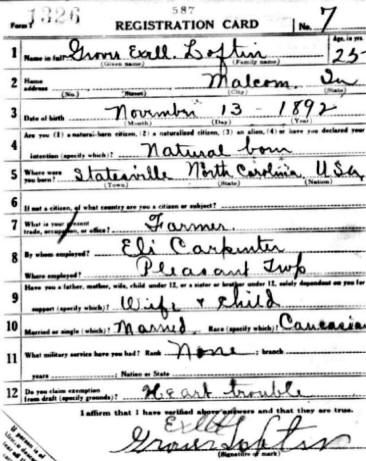 Form 1 1326 587 REGISTRATION CARD No. 7
1 Name in full Grover Exall. Loftin Age, in yrs. 25
(Given name) (Family name)
2 Home address Malcom, Ia
(No.) (Street) (City) (State)
3 Date of birth November 13 - 1892
(Month) (Day) (Year)
Are you (1) a natural-born citizen, (2) a naturalized citizen, (3) an alien, (4) or have you declared your
4 intention (specify which)? Natural born
5 Where were you born? Statesville North Carolina USA
(Town) (State) (Nation)
6 If not a citizen, of what country are you a citizen or subject?
7 What is your present trade, occupation, or office? Farmer
8 By whom employed? Eli Carpenter
Where employed? Pleasant Twp
Have you a father, mother, wife, child under 12, or a sister or brother under 12, solely dependent on you for
9 support (specify which)? Wife & Child
10 Married or single (which)? Married. Race (specify which)? Caucasian
11 What military service have you had? Rank None; branch
years; Nation or State
12 Do you claim exemption from draft (specify grounds)? Heart trouble
I affirm that I have verified above answers and that they are true.
Exall
Grover Loftin
(Signature or mark)
If person is of